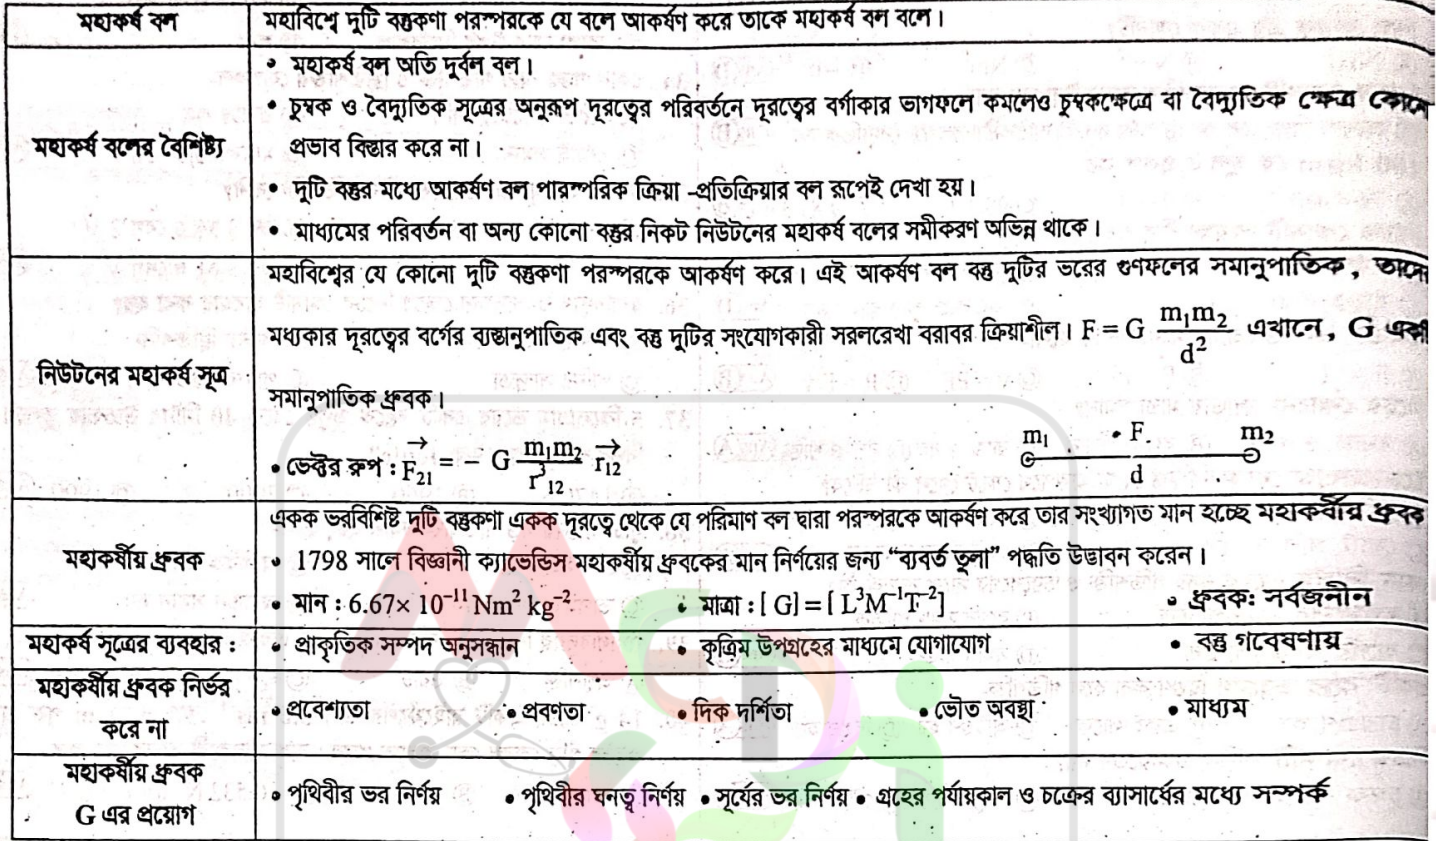 মহাকর্ষ বল
মহাবিশ্বে দুটি বস্তুকণা পরস্পরকে যে বলে আকর্ষণ করে তাকে মহাকর্ষ বল বলে।
মহাকর্ষ বলের বৈশিষ্ট্য
• মহাকর্ষ বল অতি দুর্বল বল।
• চুম্বক ও বৈদ্যুতিক সূত্রের অনুরূপ দূরত্বের পরিবর্তনে দূরত্বের বর্গাকার ভাগফলে কমলেও চুম্বকক্ষেত্রে বা বৈদ্যুতিক ক্ষেত্র কোনো
প্রভাব বিস্তার করে না।
• দুটি বস্তুর মধ্যে আকর্ষণ বল পারস্পরিক ক্রিয়া -প্রতিক্রিয়ার বল রূপেই দেখা হয়।
• মাধ্যমের পরিবর্তন বা অন্য কোনো বস্তুর নিকট নিউটনের মহাকর্ষ বলের সমীকরণ অভিন্ন থাকে।
নিউটনের মহাকর্ষ সূত্র
মহাবিশ্বের যে কোনো দুটি বস্তুকণা পরস্পরকে আকর্ষণ করে। এই আকর্ষণ বল বস্তু দুটির ভরের গুণফলের সমানুপাতিক,
মধ্যকার দূরত্বের বর্গের ব্যস্তানুপাতিক এবং বস্তু দুটির সংযোগকারী সরলরেখা বরাবর ক্রিয়াশীল। F = G m₁m₂/d² এখানে, G
সমানুপাতিক ধ্রুবক।
• ভেক্টর রুপ : F⃗₂₁ = − G m₁m₂/r³₁₂ r⃗₁₂
m₁ • F. m₂
d
মহাকর্ষীয় ধ্রুবক
একক ভরবিশিষ্ট দুটি বস্তুকণা একক দূরত্বে থেকে যে পরিমাণ বল দ্বারা পরস্পরকে আকর্ষণ করে তার সংখ্যাগত মান হচ্ছে মহাকর্ষীয় ধ্রুবক
• 1798 সালে বিজ্ঞানী ক্যাভেন্ডিস মহাকর্ষীয় ধ্রুবকের মান নির্ণয়ের জন্য “ব্যবর্ত তুলা” পদ্ধতি উদ্ভাবন করেন।
• মান : 6.67× 10⁻¹¹ Nm² kg⁻² • মাত্রা : [ G] = [ L³M⁻¹T⁻²] • ধ্রুবক: সর্বজনীন
মহাকর্ষ সূত্রের ব্যবহার : • প্রাকৃতিক সম্পদ অনুসন্ধান • কৃত্রিম উপগ্রহের মাধ্যমে যোগাযোগ • বস্তু গবেষণায়
মহাকর্ষীয় ধ্রুবক নির্ভর
করে না
• প্রবেশ্যতা • প্রবণতা • দিক দর্শিতা • ভৌত অবস্থা • মাধ্যম
মহাকর্ষীয় ধ্রুবক
G এর প্রয়োগ
• পৃথিবীর ভর নির্ণয় • পৃথিবীর ঘনত্ব নির্ণয় • সূর্যের ভর নির্ণয় • গ্রহের পর্যায়কাল ও চক্রের ব্যাসার্ধের মধ্যে সম্পর্ক